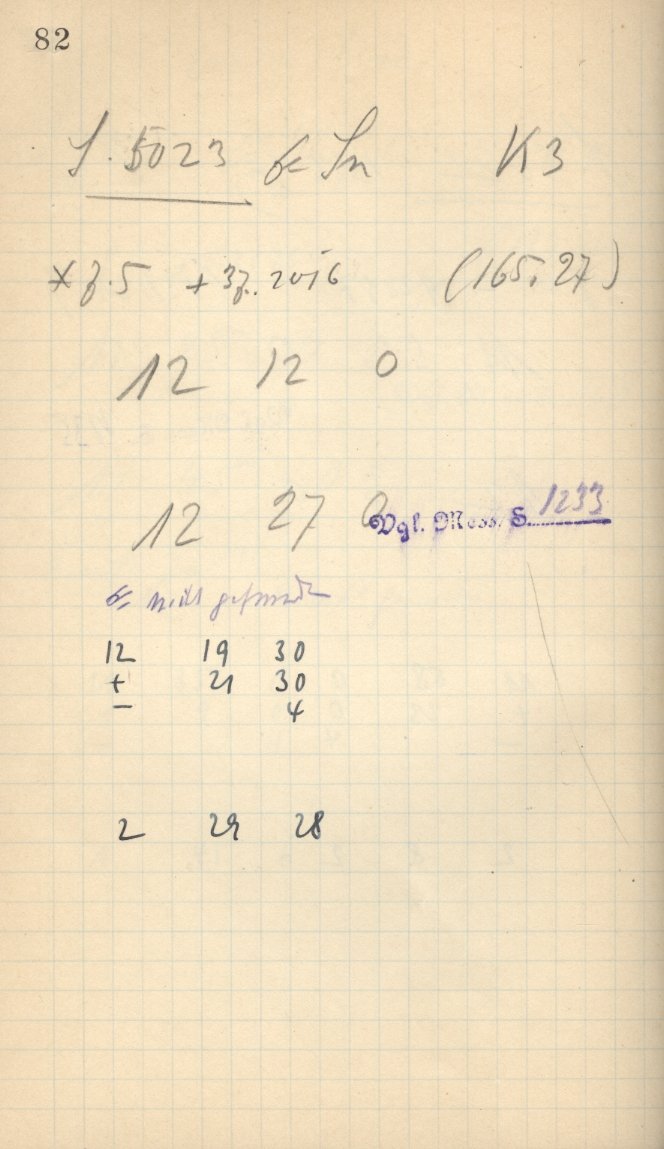 82
S. 5023 K3
+ 3z. 2016 (165.27)
12 12 0
12 27 0 Vgl. Mess. S. 1233
nicht gefunden
12 19 30
+ 21 30
- 4
2 29 28